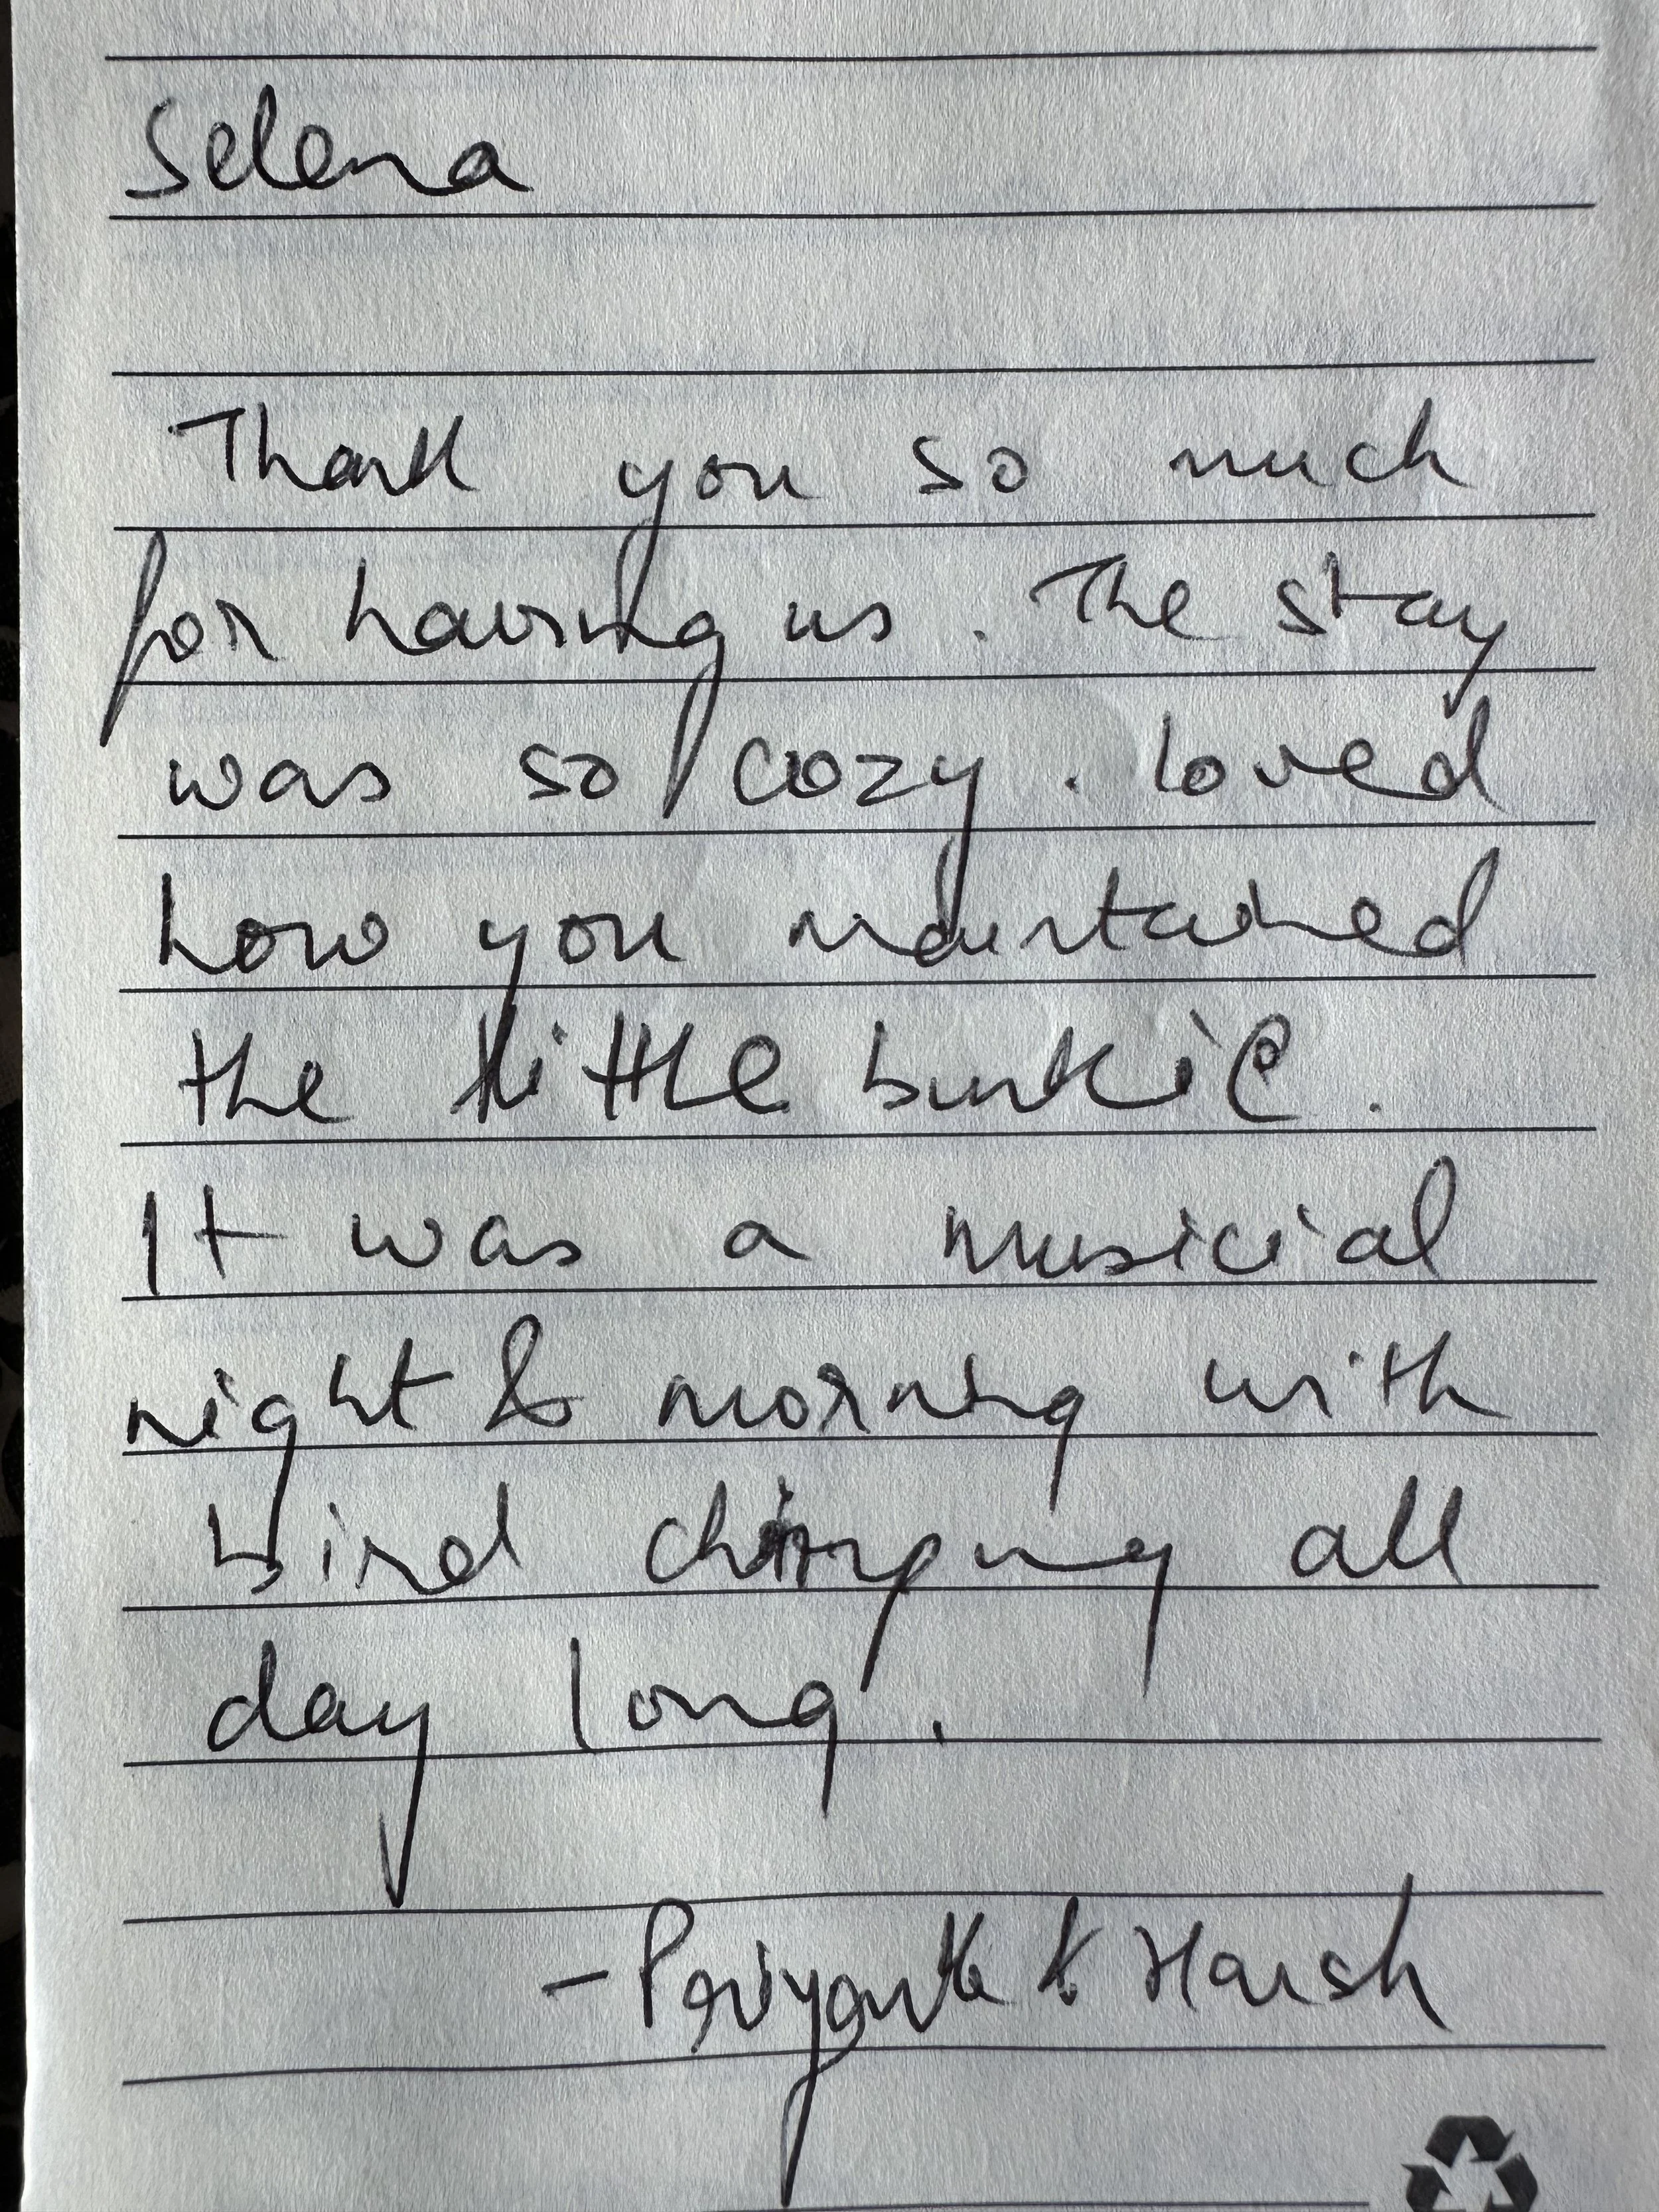 Selena
Thank you so much
for having us. The stay
was so cozy. loved
how you maintained
the little bunkie.
It was a musicial
night & morning with
bird chirping all
day long.
- & Harsh